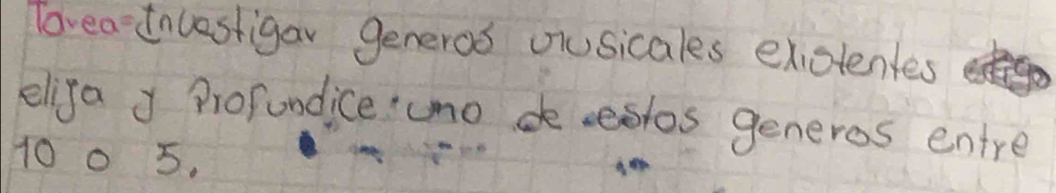 Tarea=Investigar generos musicales existentes
elija y Profundice uno de estos generos entre
10 o 5.